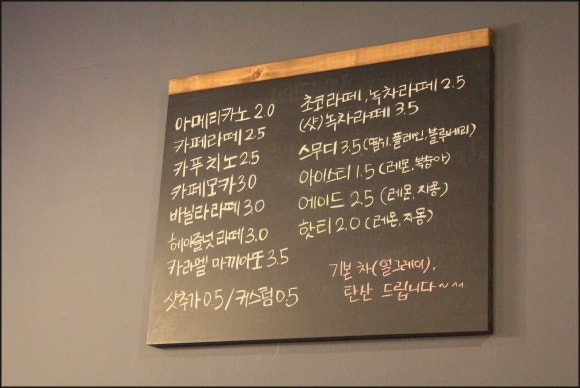 아메리카노 2.0
카페라떼 2.5
카푸치노 2.5
카페모카 3.0
바닐라라떼 3.0
헤이즐넛라떼 3.0
카라멜 마끼아또 3.5
샷추가 0.5 / 커스텀 0.5
초코라떼, 녹차라떼 2.5
(샷)녹차라떼 3.5
스무디 3.5 (딸기, 플레인, 블루베리)
아이스티 1.5 (레몬, 복숭아)
에이드 2.5 (레몬, 자몽)
핫티 2.0 (레몬, 자몽)
기본 차(얼그레이),
탄산 드립니다~^^